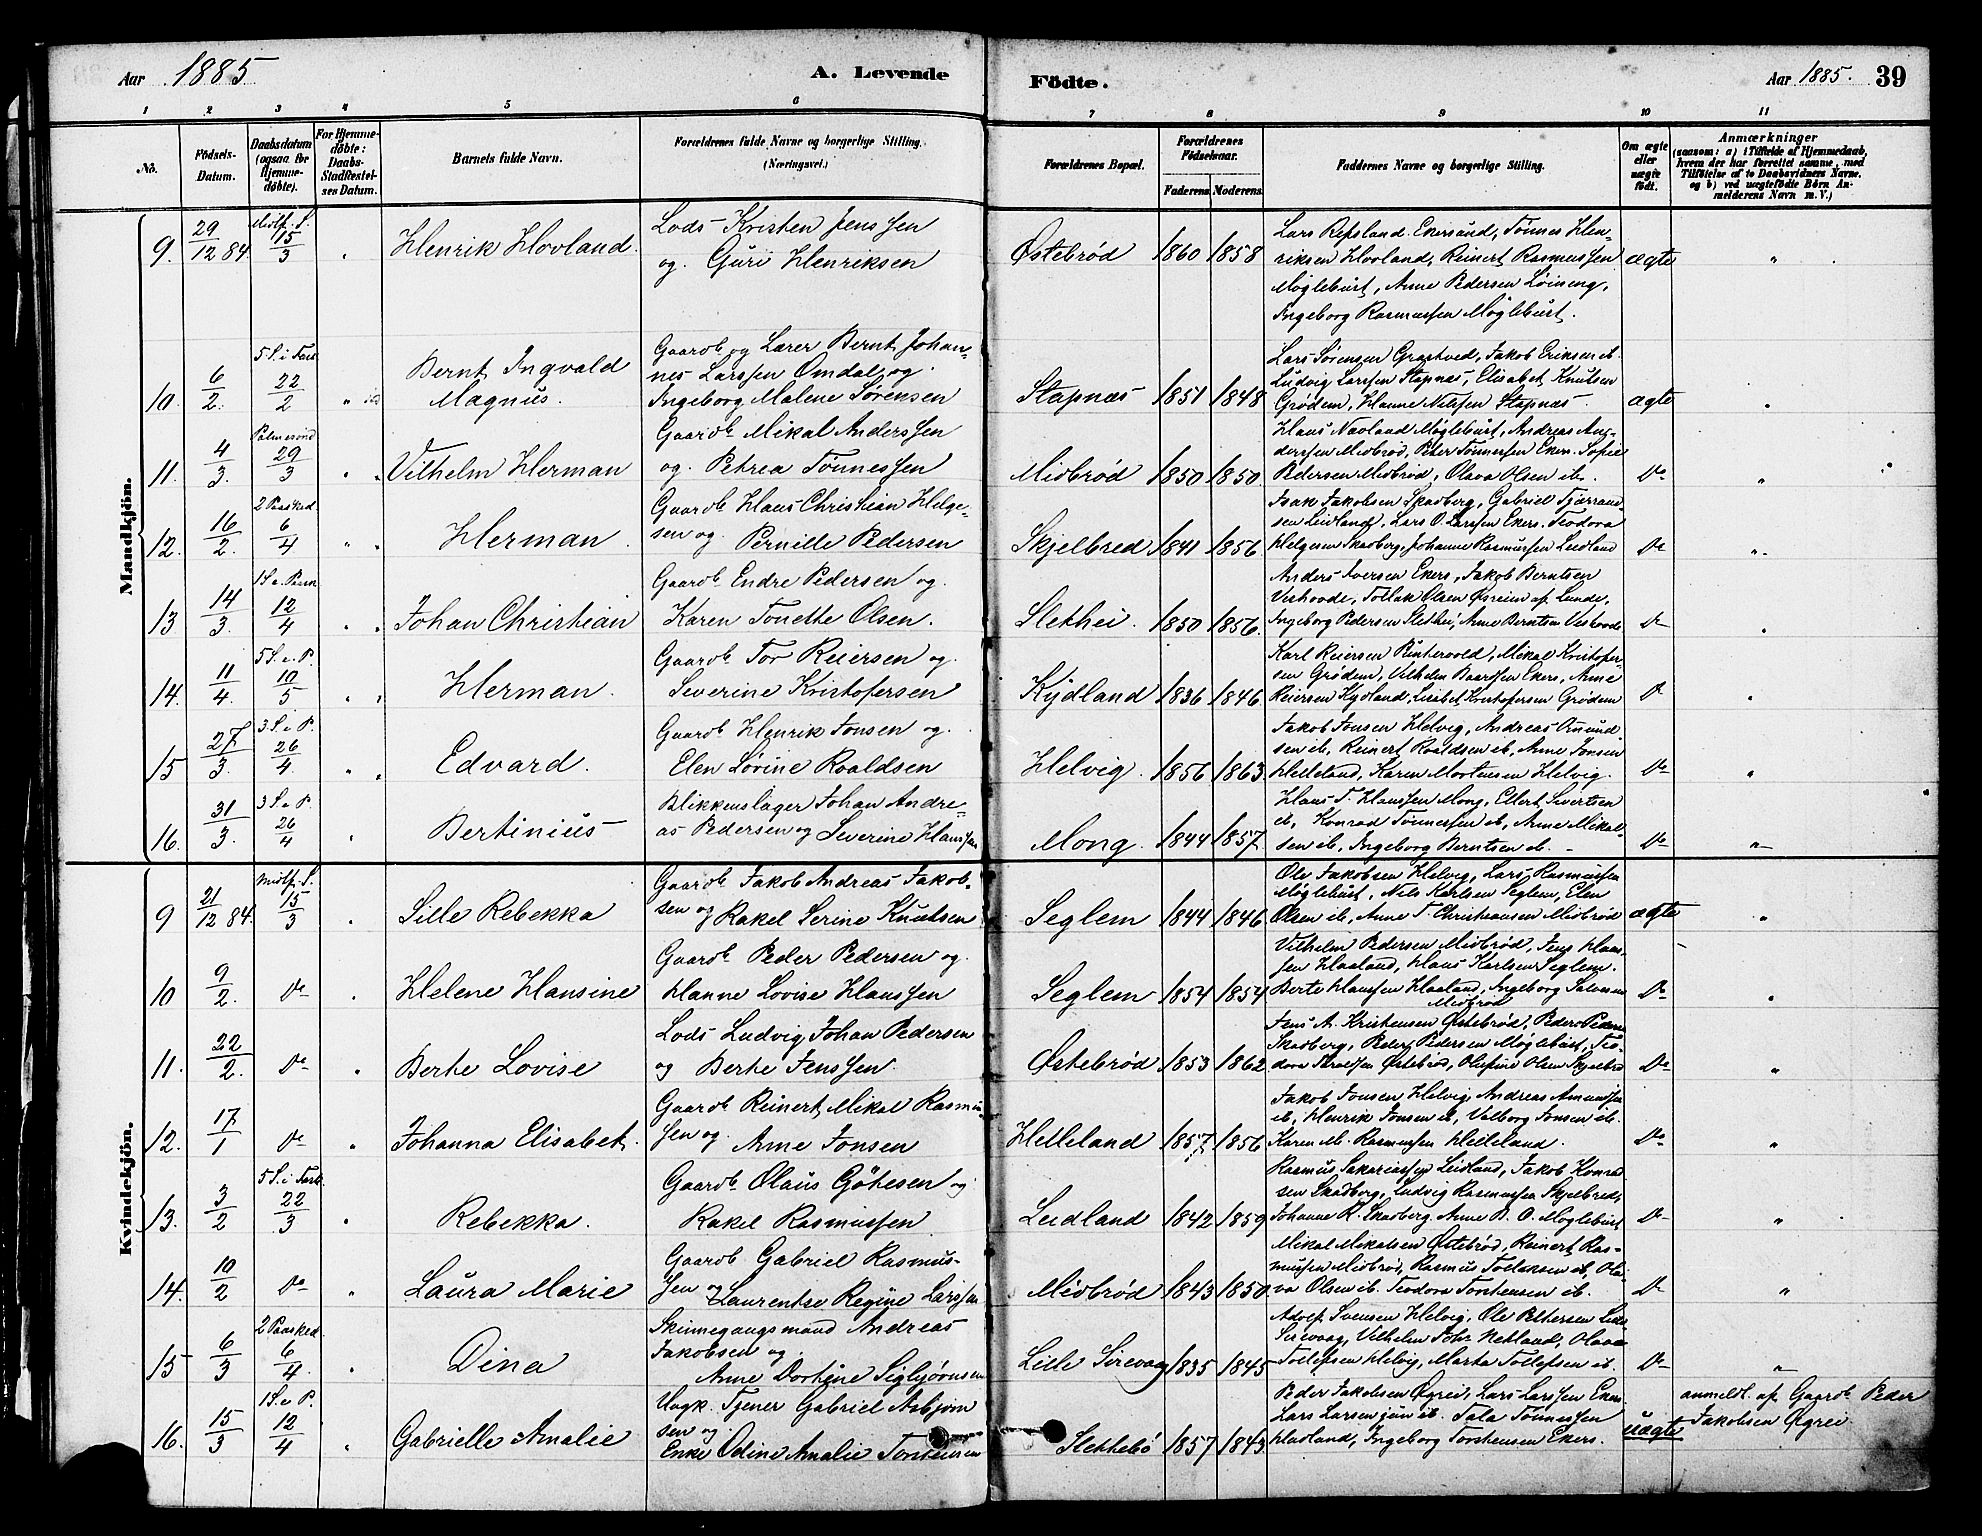 Aar 1885
A. Levende
Födte.
Aar 1885.
39
1
2
3
4
5
6
7
8
9
10
11
No.
Födsels-
Datum.
Daabsdatum
(ogsaa for
Hjemme-
döbte).
For Hjemme-
döbte:
Daabs-
Stadfæstel-
ses Datum.
Barnets fulde Navn.
Forældrenes fulde Navne og borgerlige Stilling.
(Næringsvei.)
Forældrenes Bopæl.
Forældrenes
Födselsaar.
Faderens.
Moderens.
Faddernes Navne og borgerlige Stilling.
Om ægte
eller
uægte
födt.
Anmærkninger
(saasom: a) i Tilfælde af Hjemmedaab,
hvem der har forrettet samme, med
Tilföielse af to Daabsvidners Navne.
og b) ved uægtefödte Börn An-
melderens Navn m. V.)
Mandkjön.
9. 29/12 84. Midf. S. 15/3 " Henrik Hovland.
Lods Kristen Jenssen
og Guri Henriksen
Østebrød 1860 1858
Lars Repsland Ekersund, Tønnes Hen-
riksen Hovland, Reinert Rasmussen
Møglebust, Anne Pedersen Løining,
Ingeborg Rasmussen Møglebust.
ægte "
10. 6/2. 5 S. i Fast. 22/2 "
Bernt Ingvald
Magnus.
Gaardb. og Lærer Bernt Johan-
nes Larssen Omdal og
Ingeborg Malene Sørensen
Stapnæs 1851 1848
Lars Sørensen Grastved, Jakob Eriksen ib.
Ludvig Larssen Stapnæs, Elisabet Knutsen
Grødem, Hanne Nilssen Stapnæs.
ægte "
11. 4/3. Palmesønd 29/3 " Vilhelm Herman
Gaardb. Mikal Anderssen
og Petrea Tønnessen
Midbrød 1850 1850.
Hans Navland Møglebust, Andreas An-
derssen Midbrød, Peter Tønnessen Ekers. Sofie
Pedersen Midbrød, Olava Olsen ib.
Do "
12. 16/2. 2 Paasked. 6/4 " Herman
Gaardb. Hans Christian Helge-
sen og Pernille Pedersen
Skjelbred 1841 1856
Isak Jakobsen Skadberg, Gabriel
sen Leidland, Lars O. Larssen Ekers. Teodora
Helgesen Skadberg, Johanne Rasmussen Leidland
Do "
13 14/3. 1 S. e. Paask. 12/4 " Johan Christian
Gaardb. Endre Pedersen og
Karen Tonette Olsen.
Slethei. 1850 1856.
Anders Iversen Ekers, Jakob Berntsen
Veshovde, Tollak Olsen af Lunde,
Ingeborg Pedersen Slethei, Anne Berntsen Veshovde
Do "
14. 11/4. 5 S. e. P. 10/5 " Herman.
Gaardb. Tor Reiersen og
Severine Kristofersen
Kydland 1836 1846.
Karl Reiersen, Mikal Kristofer-
sen Grødem, Vilhelm Baardsen Ekers, Anne
Reiersen Kydland, Lisabet Kristofersen Grødem
Do "
15 27/3. 3 S. e. P. 26/4. " Edvard.
Gaardb. Henrik Jonsen og
Elen Sørine Roaldsen
Helvig. 1856 1863.
Jakob Jonsen Helvig, Andreas Omund-
sen ib, Reinert Roaldsen ib, Anne Jonsen
Helleland, Karen Mortensen Helvig.
Do "
16. 31/3. 3 S. e. P. 26/4 " Bertinius
Blikkenslager Johan Andre-
as Pedersen og Severine Hanssen
Mong. 1844 1857.
Hans T. Hanssen Mong, Ellert Sivertsen
ib, Konrad Tønnessen ib, Anne Mikal-
sen ib, Ingeborg Berntsen ib.
Do "
Kvindekjön.
9 21/12 84. Midf. S. 15/3 " Sille Rebekka
Gaardb. Jakob Andreas Jakob-
sen og Rakel Serine Knutsen
Seglem 1844 1846
Ole Jakobsen Helvig, Lars Rasmussen
Møglebust, Nils Karlsen Seglem, Elen
Olsen ib, Anne T. Christiansen Midbrød
ægte "
10 9/2. Do " Helene Hansine
Gaardb. Peder Pedersen og
Hanne Lovise Hanssen
Seglem 1854 1854
Vilhelm Pedersen Midbrød, Jens Hans-
sen Haaland, Hans Karlsen Seglem.
Berte Hanssen Haaland, Ingeborg Salvesen
Midbrød
Do "
11. 22/2. Do " Berte Lovise
Lods Ludvig Johan Pedersen
og Berte Jenssen.
Østebrød 1853 1862
Jens A. Kristensen Østebrød, Peder Pedersen
Skadberg, Peder Pedersen Møglebust, Teo-
dora Østebrød, Olufine Olsen Skjelbred
Do "
12. 17/1 Do " Johanna Elisabet.
Gaardb. Reinert Mikal Rasmus-
sen og Anne Jonsen
Helleland 1857. 1856
Jakob Jonsen Helvig Andreas Amundsen
ib, Henrik Jonsen ib, Valborg Jonsen ib.
Karen M. Rasmussen Helleland.
Do "
13. 3/2 5 S. i Fast. 22/3 " Rebekka.
Gaardb. Olaus Götesen og
Rakel Rasmussen
Leidland 1842 1859
Rasmus Sakariassen Leidland, Jakob Konrad-
sen Skadberg, Ludvig Rasmussen Skjelbred,
Johanne K. Skadberg, Anne B. O. Møglebust
Do "
14. 10/2 Do " Laura Marie
Gaardb. Gabriel Rasmus-
sen og Laurentse Regine Larssen
Midbrød 1843 1850.
Mikal Mikalsen Østebrød, Reinert Ras-
mussen Midbrød, Rasmus Tollaksen ib, Ola-
va Olsen ib. Teodora Torstensen ib.
Do "
15 6/3 2 Paasked 6/4. " Dina
Skinnegangsmand Andreas
Jakobsen og
Anne Dortine Sigbjørnsen
Lille Sirevaag 1835 1845
Adolf Svensen Helvig, Ole Pettersen Lille
Sirevaag, Vilhelm Netland, Olava
Tollefsen Helvig, Marta Tollefsen ib.
Do "
16. 15/3 1 S. e. P. 12/4 " Gabrielle Amalie
Ungk. Tjener Gabriel Asbjørn
sen og
Enke Odine Amalie Torstensen
Slettebø 1857 1843.
Peder Jakobsen Øgrei, Lars Larssen Ekers.
Lars Larsen jun ib. Tala Tønnessen
Hadland, Ingeborg Torstensen Ekers.
uægte
anmeldt af Gaardb. Peder
Jakobsen Øgrei